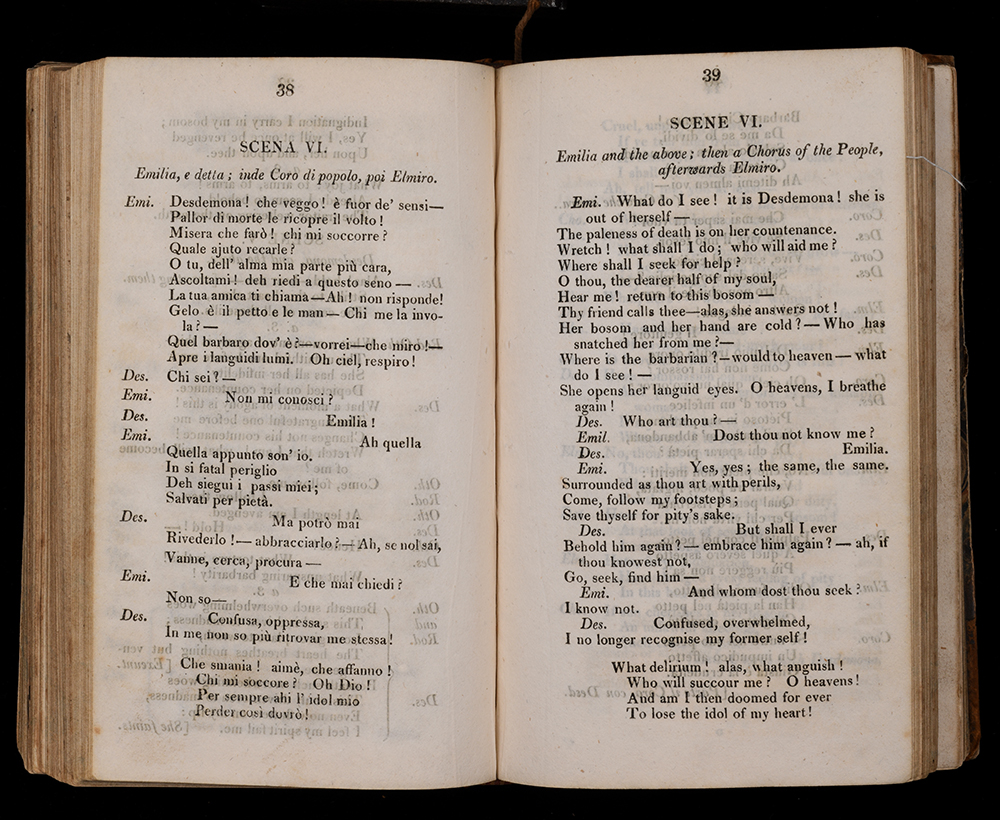 38
SCENA VI.
Emilia, e detta ; inde Coro di popolo, poi Elmiro.
Emi. Desdemona ! che veggo ! è fuor de' sensi—
Pallor di morte le ricopre il volto !
Misera che farò ! chi mi soccorre ?
Quale ajuto recarle ?
O tu, dell' alma mia parte più cara,
Ascoltami ! deh riedi a questo seno —
La tua amica ti chiama—Ah ! non risponde!
Gelo è il petto e le man — Chi me la invo-
la ? —
Quel barbaro dov' è ?—vorrei—che miro !—
Apre i languidi lumi. Oh ciel, respiro !
Des. Chi sei ? —
Emi. Non mi conosci ?
Des. Emilia !
Emi. Ah quella
Quella appunto son' io.
In si fatal periglio
Deh siegui i passi miei ;
Salvati per pietà.
Des. Ma potrò mai
Rivederlo !— abbracciarlo ? — Ah, se nol sai,
Vanne, cerca, procura —
Emi. E che mai chiedi ?
Non so—
Des. Confusa, oppressa,
In me non so più ritrovar me stessa !
Che smania ! aimè, che affanno !
Chi mi soccore ? Oh Dio !
Per sempre ahi l' idol mio
Perder così dovrò !
39
SCENE VI.
Emilia and the above ; then a Chorus of the People,
afterwards Elmiro.
Emi. What do I see ! it is Desdemona ! she is
out of herself —
The paleness of death is on her countenance.
Wretch ! what shall I do ; who will aid me ?
Where shall I seek for help ?
O thou, the dearer half of my soul,
Hear me ! return to this bosom —
Thy friend calls thee—alas, she answers not !
Her bosom and her hand are cold ? — Who has
snatched her from me ?—
Where is the barbarian ? — would to heaven — what
do I see ! —
She opens her languid eyes. O heavens, I breathe
again !
Des. Who art thou ? —
Emil. Dost thou not know me ?
Des. Emilia.
Emi. Yes, yes ; the same, the same.
Surrounded as thou art with perils,
Come, follow my footsteps ;
Save thyself for pity's sake.
Des. But shall I ever
Behold him again ? — embrace him again ? — ah, if
thou knowest not,
Go, seek, find him —
Emi. And whom dost thou seek ?
I know not.
Des. Confused, overwhelmed,
I no longer recognise my former self !
What delirium ! alas, what anguish !
Who will succour me ? O heavens !
And am I then doomed for ever
To lose the idol of my heart !